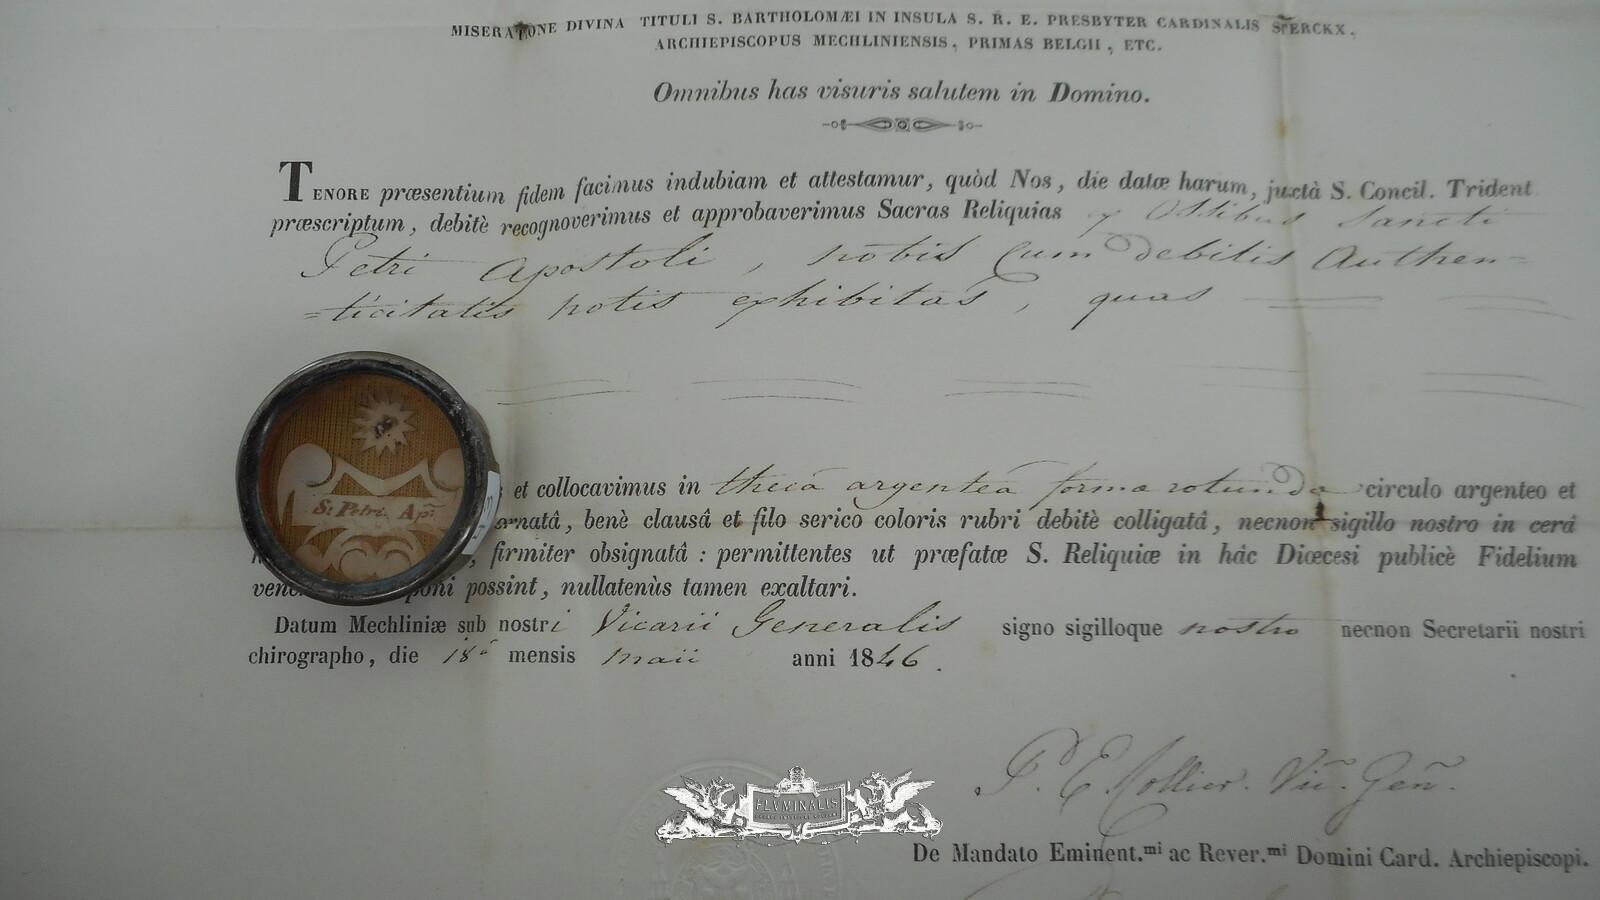 MISERATIONE DIVINA TITULI S. BARTHOLOMÆI IN INSULA S. R. E. PRESBYTER CARDINALIS STERCKX,
ARCHIEPISCOPUS MECHLINIENSIS, PRIMAS BELGII, ETC.
Omnibus has visuris salutem in Domino.
TENORE præsentium fidem facimus indubiam et attestamur, quòd Nos, die datæ harum, juxtà S. Concil. Trident
præscriptum, debitè recognoverimus et approbaverimus Sacras Reliquias ex Ossibus Sancti
Petri Apostoli, nobis cum debitis Authen=
=ticitatis notis exhibitas, quas
et collocavimus in thecâ argenteâ formæ rotundæ circulo argenteo et
ornatâ, benè clausâ et filo serico coloris rubri debitè colligatâ, necnon sigillo nostro in cerâ
St Petri Ap:
firmiter obsignatâ : permittentes ut præfatæ S. Reliquiæ in hâc Diœcesi publicè Fidelium
vene poni possint, nullatenùs tamen exaltari.
Datum Mechliniæ sub nostri Vicarii Generalis signo sigilloque nostro necnon Secretarii nostri
chirographo, die 18â mensis maii anni 1846.
P. E. Collier. Vic. Gen.
FLVMINALIS
De Mandato Eminent.mi ac Rever.mi Domini Card. Archiepiscopi.